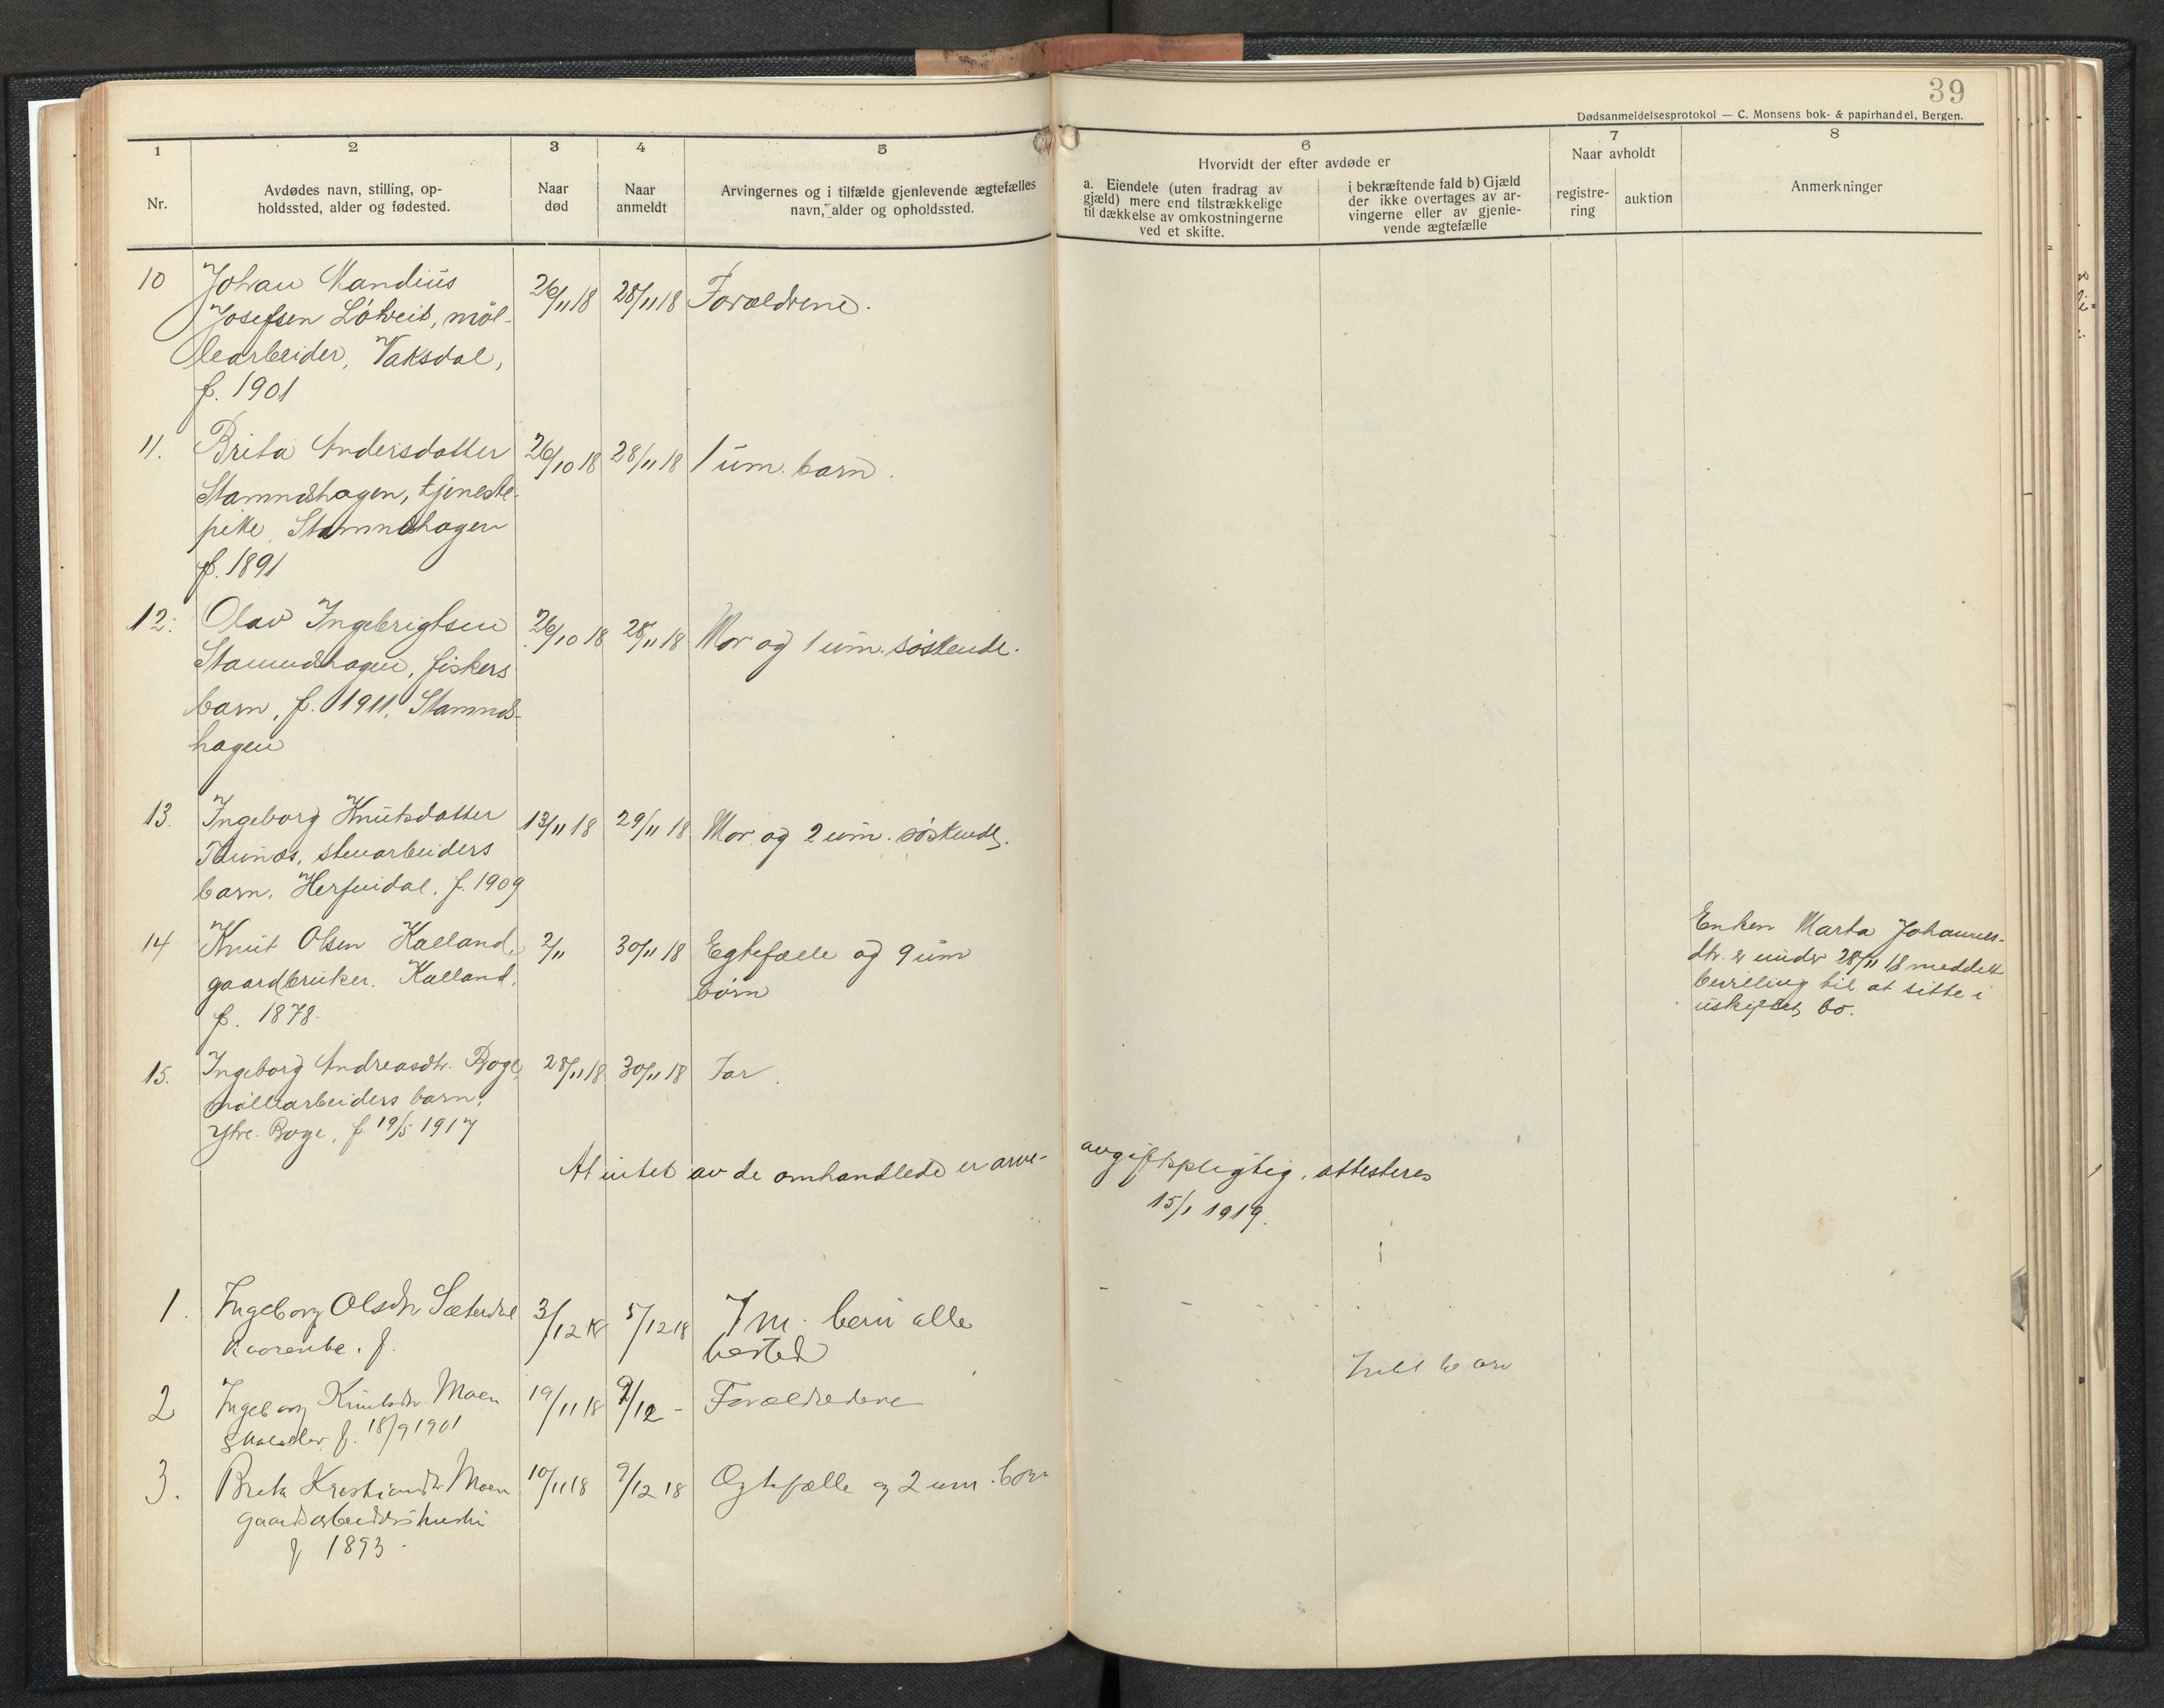 39
Dødsanmeldelsesprotokol — C. Monsens bok- & papirhandel, Bergen.
1
2
3
4
5
6
7
8
Nr.
Avdødes navn, stilling, op-
holdssted, alder og fødested.
Naar
død
Naar
anmeldt
Arvingernes og i tilfælde gjenlevende ægtefælles
navn, alder og opholdssted.
Hvorvidt der efter avdøde er
a. Eiendele (uten fradrag av
gjæld) mere end tilstrækkelige
til dækkelse av omkostningerne
ved et skifte.
i bekræftende fald b) Gjæld
der ikke overtages av ar-
vingerne eller av gjenle-
vende ægtefælle
Naar avholdt
registre-
ring
auktion
Anmerkninger
10 Johan Mandius 26/11 18 28/11 18 Forældrene.
Josefsen Løtveit, møl-
learbeider, Vaksdal,
f. 1901
11. Brita Andersdatter 26/10 18 28/11 18 1 um. barn.
Stamneshagen, tjeneste-
pike, Stamneshagen
f. 1891
12. Olav Ingebrigtsen 26/10 18 28/11 18 Mor og 1 um. søskende.
Stamneshagen, fiskers
barn, f. 1911, Stamnes-
hagen
13. Ingeborg Knutsdatter 13/11 18 29/11 18 Mor og 2 um. søskende.
stenarbeiders
barn, Herfindal, f. 1909
14 Knut Olsen Kalland, 2/11 30/11 18 Egtefælle og 9 um
gaardbruker, Kalland, børn
f. 1878.
Enken Marta Johannes-
dtr. er under 28/11 18 meddelt
bevilling til at sitte i
uskiftet bo.
15. Ingeborg Andreasdtr. Boge, 28/11 18 30/11 18 Far.
møllearbeiders barn,
Ytre Boge, f. 19/5 1917
At intet av de omhandlede er arve- avgiftspligtig, attesteres
15/1 1919.
1. Ingeborg Olsdtr Sæterdal 3/12 18 5/12 18 7 m. børn alle
f.
2 Ingeborg Knutsdtr. Moen 19/11 18 9/12 - Forældrene
f. 18/9 1901
3. Brita Kristiansdtr Moen 10/11 18 9/12 18 Egtefælle og 2 um. børn
gaardsarbeiders hustru
f 1893.